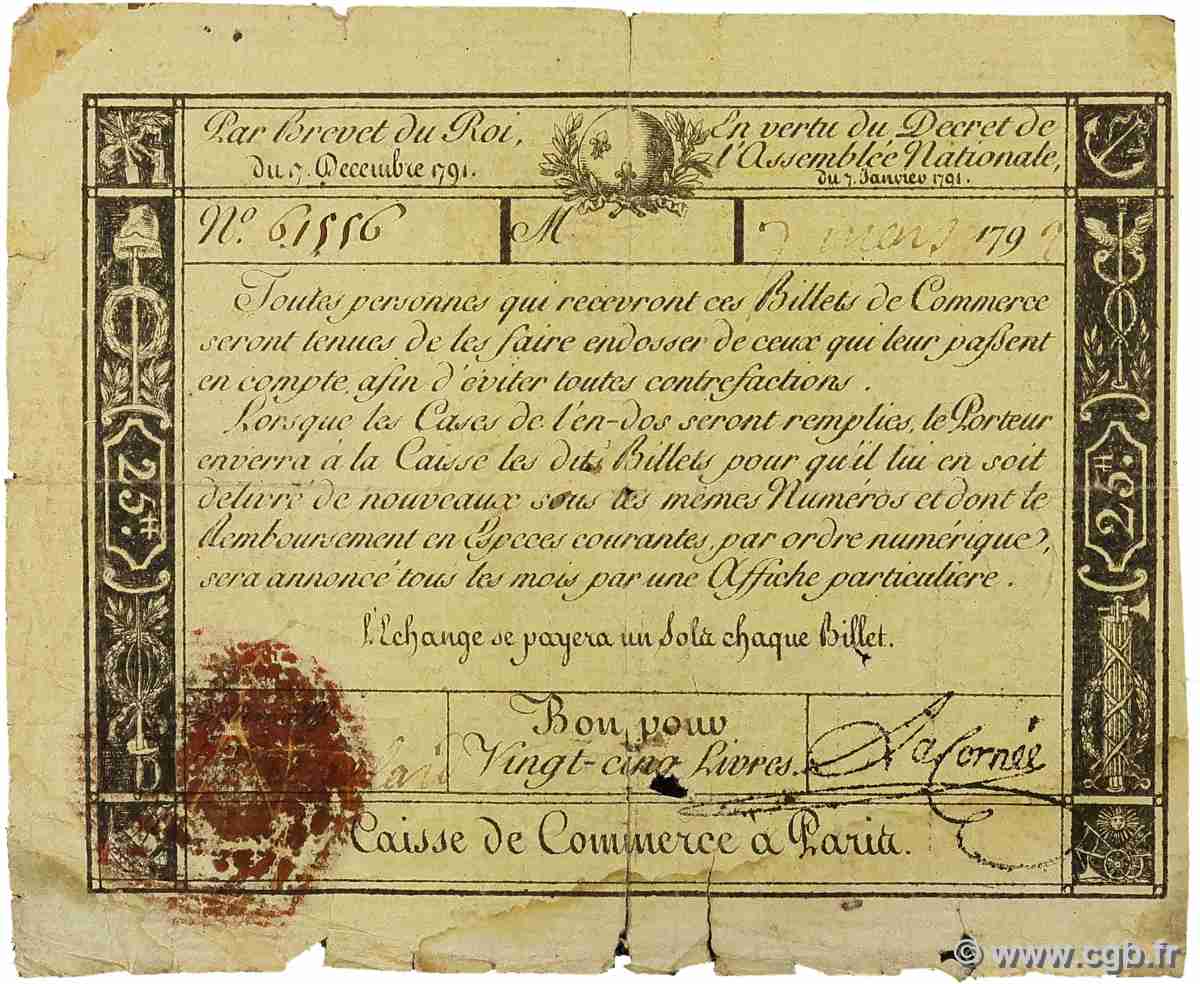 Par Brevet du Roi,
du 7. Decembre 1791.
En vertu du Decret de
l'Assemblée Nationale,
du 7. Janvier 1791.
N.º 61556
M
mars 1792
Toutes personnes qui recevront ces Billets de Commerce
seront tenues de les faire endosser de ceux qui leur paſsent
en compte, afin d'éviter toutes contrefactions.
Lorsque les Cases de l'en-dos seront remplies, le Porteur
enverra à la Caisse les dits Billets pour qu'il lui en soit
délivré de nouveaux sous les mêmes Numéros et dont le
Remboursement en Espèces courantes, par ordre numérique,
sera annoncé tous les mois par une Affiche particuliere.
L'Echange se payera un Sol à chaque Billet.
25.₶
25.₶
Bon pour
Vingt-cinq Livres.
Lacornée
Caisse de Commerce a Paris.
© www.cgb.fr